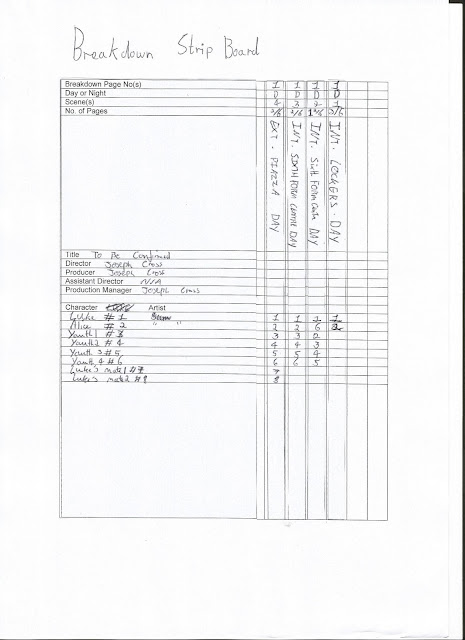 Breakdown Strip Board
Breakdown Page No(s) 1 1 1 1
Day or Night D D D D
Scene(s) 4 3 2 1
No. of Pages
EXT. PIAZZA DAY
INT. SIXTH FORM CENTRE DAY
INT. Sixth Form Centre DAY
INT. LOCKERS. DAY
Title To Be Confirmed
Director Joseph Cross
Producer Joseph Cross
Assistant Director N/A
Production Manager Joseph Cross
Character Artist
Luke # 1 1 1 1 1
Alice # 2 " " 2 2 6 2
Youth 1 # 3 3 3 2
Youth 2 # 4 4 4 3
Youth 3 # 5 5 5 4
Youth 4 # 6 6 6 5
Luke's mate 1 # 7 7
Luke's mate 2 # 8 8